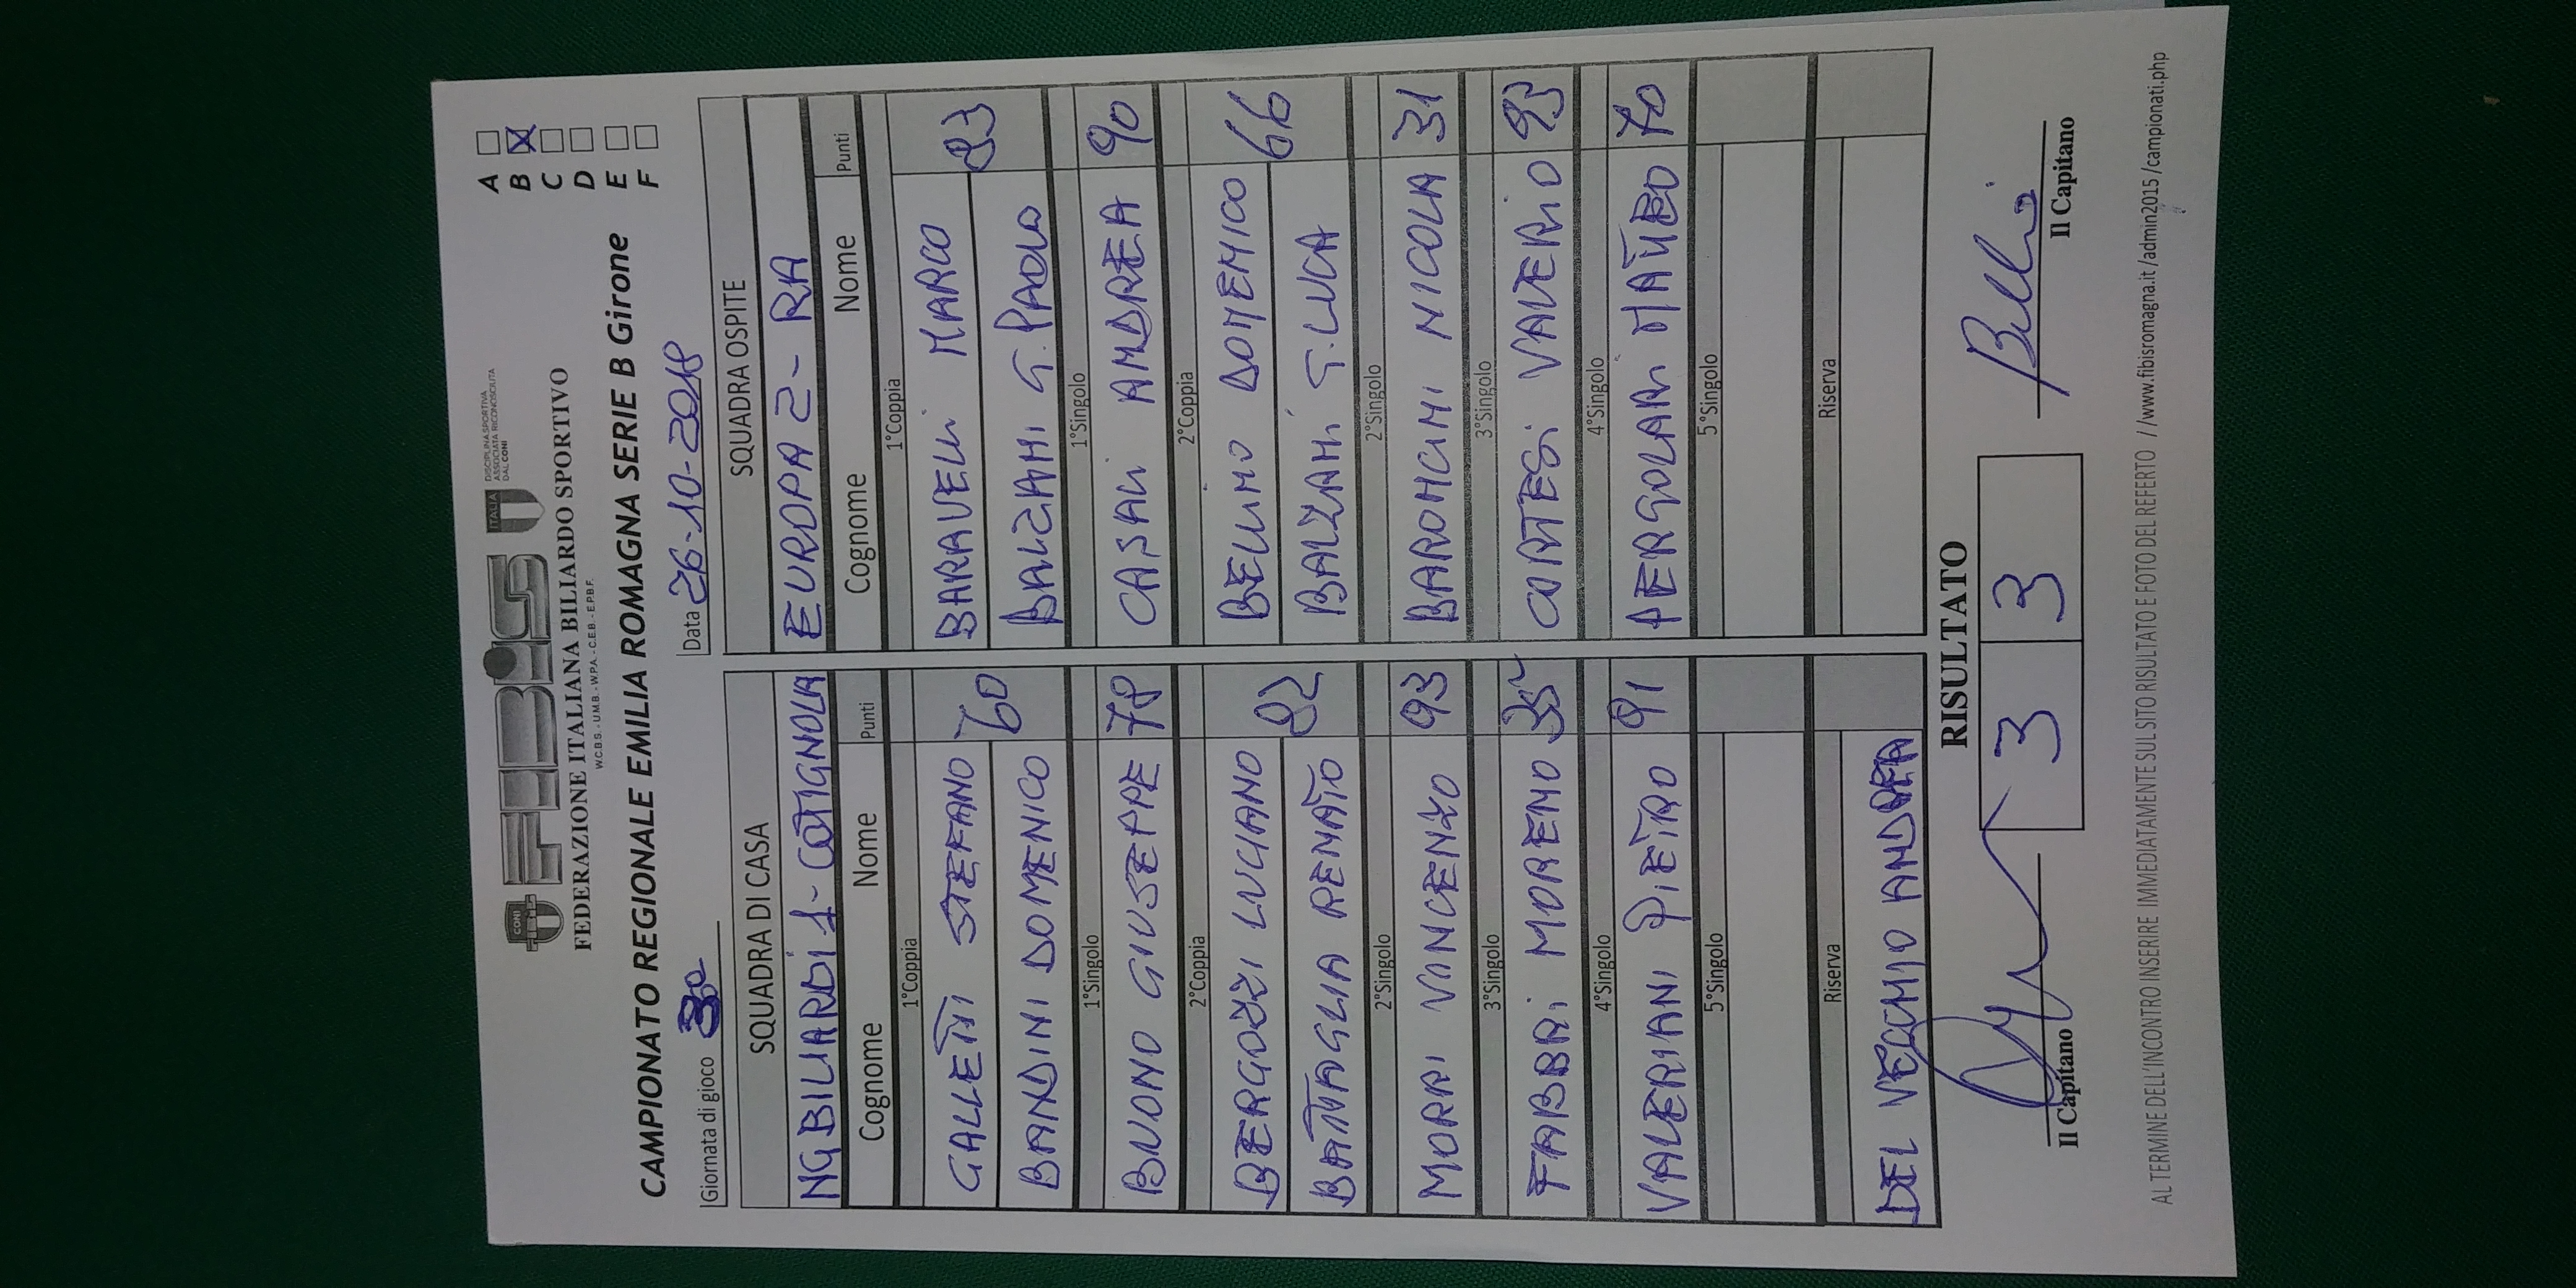 CONI FIBIS ITALIA DISCIPLINA SPORTIVA
ASSOCIATA RICONOSCIUTA
DAL CONI
FEDERAZIONE ITALIANA BILIARDO SPORTIVO
W.C.B.S. - U.M.B. - W.P.A. - C.E.B. - E.P.B.F.
CAMPIONATO REGIONALE EMILIA ROMAGNA SERIE B Girone
A
B X
C
D
E
F
Giornata di gioco
Data 26-10-2018
SQUADRA DI CASA SQUADRA OSPITE
NGBILIARDI 1-COTIGNOLA EUROPA 2 - RA
Cognome Nome Punti Cognome Nome Punti
1°Coppia 1°Coppia
GALLETTI STEFANO 60 BARAVELLI MARCO 83
BANDINI DOMENICO BALZANI G.PAOLO
1°Singolo 1°Singolo
BUONO GIUSEPPE 78 CASALI ANDREA 90
2°Coppia 2°Coppia
BERGOZZI LUCIANO 82 BELLINO DOMENICO 66
BATTAGLIA RENATO BALZANI G.LUCA
2°Singolo 2°Singolo
MORRI VINCENZO 93 BARONCINI NICOLA 31
3°Singolo 3°Singolo
FABBRI MORENO 35 CORTESI VALERIO 93
4°Singolo 4°Singolo
VALERIANI PIETRO 91 PERGOLARI MATTEO 70
5°Singolo 5°Singolo
Riserva Riserva
DEL VECCHIO ANDREA
RISULTATO
3 3
Il Capitano Il Capitano
AL TERMINE DELL'INCONTRO INSERIRE IMMEDIATAMENTE SUL SITO RISULTATO E FOTO DEL REFERTO //www.fibisromagna.it/admin2015/campionati.php